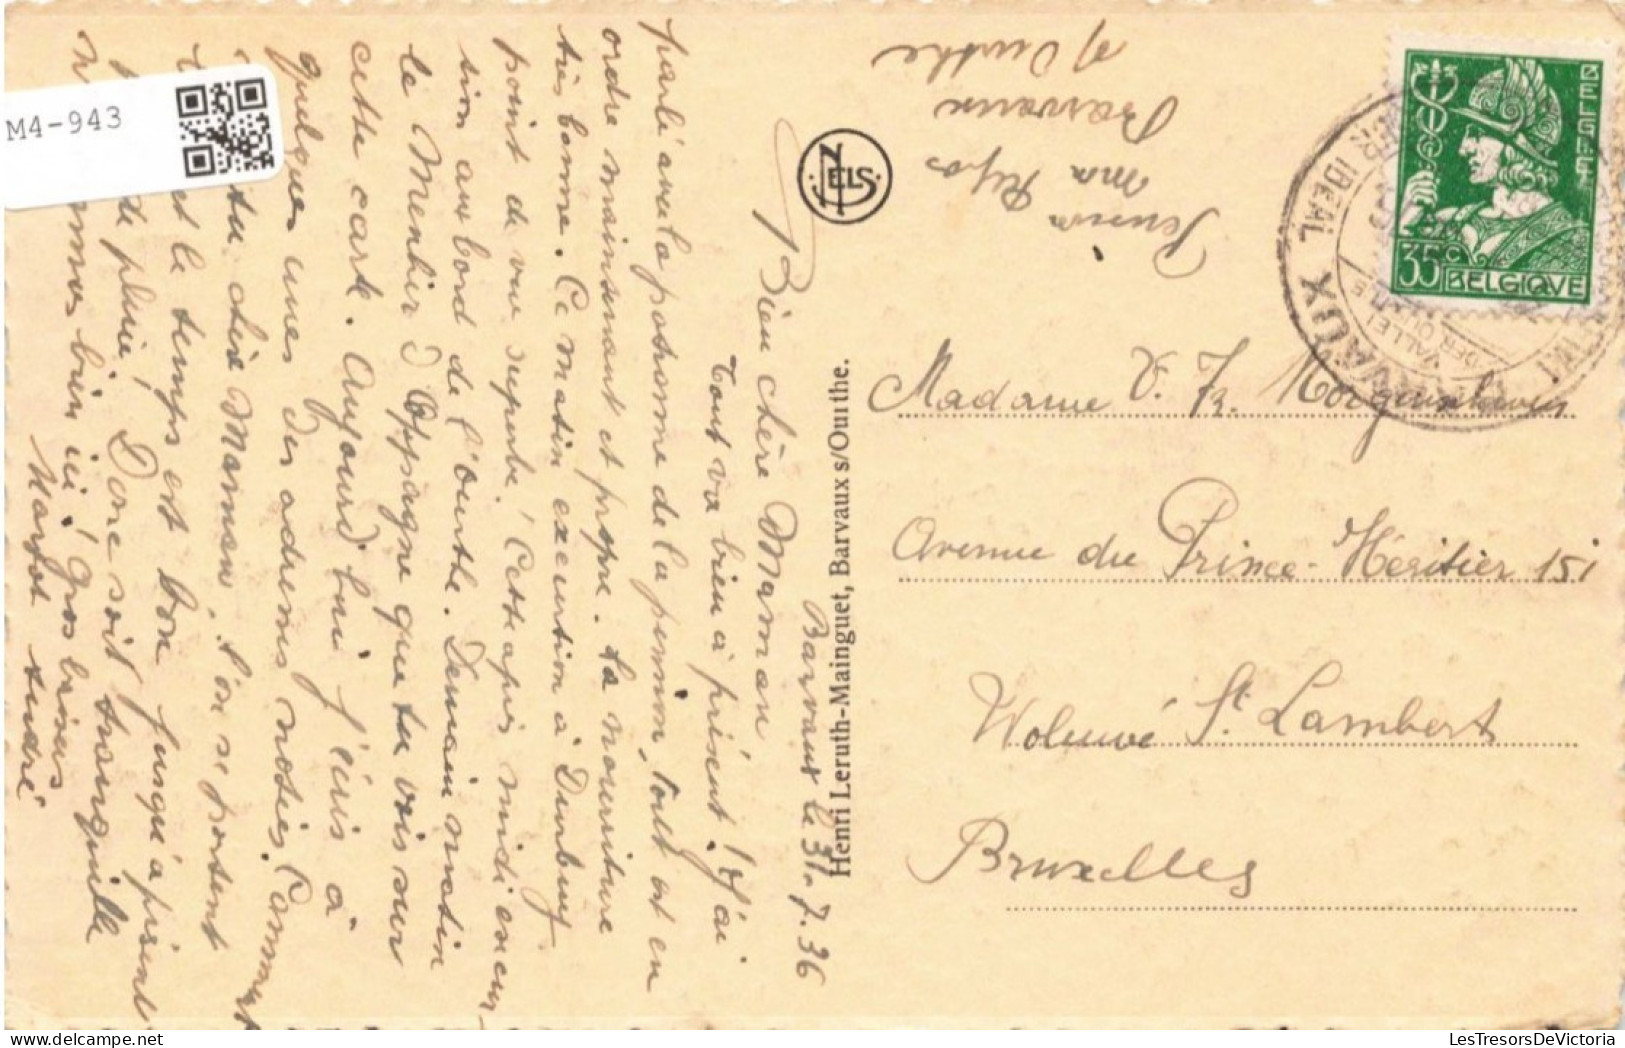 M4-943
Pension
ma Repos
Barvaux
s/ Ourthe
NELS
BELGIË
35c
BELGIQUE
IDEAL
VALLEI
DER OURTHE
Henri Leruth-Mainguet, Barvaux s/Ourthe.
Madame V. Fr.
Avenue du Prince-Héritier 151
Woluwé St. Lambert
Bruxelles
Barvaux le 31.7.36
Bien chère Maman
Tout va bien à présent! J'ai
parlé avec la patronne de la pension, tout est en
ordre maintenant et propre. La nourriture
très bonne. Ce matin excurtion à Durbuy
point de vue superbe! Cette après midi excur-
tion aux bord de l'Ourthe. Demain matin
le Menhir d'Oppagne que tu vois sur
cette carte. Aujourd'hui j'écris à
quelques unes des adresses notées. Comment
tu chère Maman. L'on se portent
et le temps est bon jusqu'à présent
de pluie! Donc soit tranquille
bien ici! Gros baisers
Margot André
LesTresorsDeVictoria